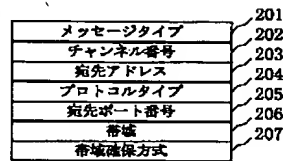 メッセージタイプ 201
チャンネル番号 202
宛先アドレス 203
プロトコルタイプ 204
宛先ポート番号 205
帯域 206
帯域確保方式 207